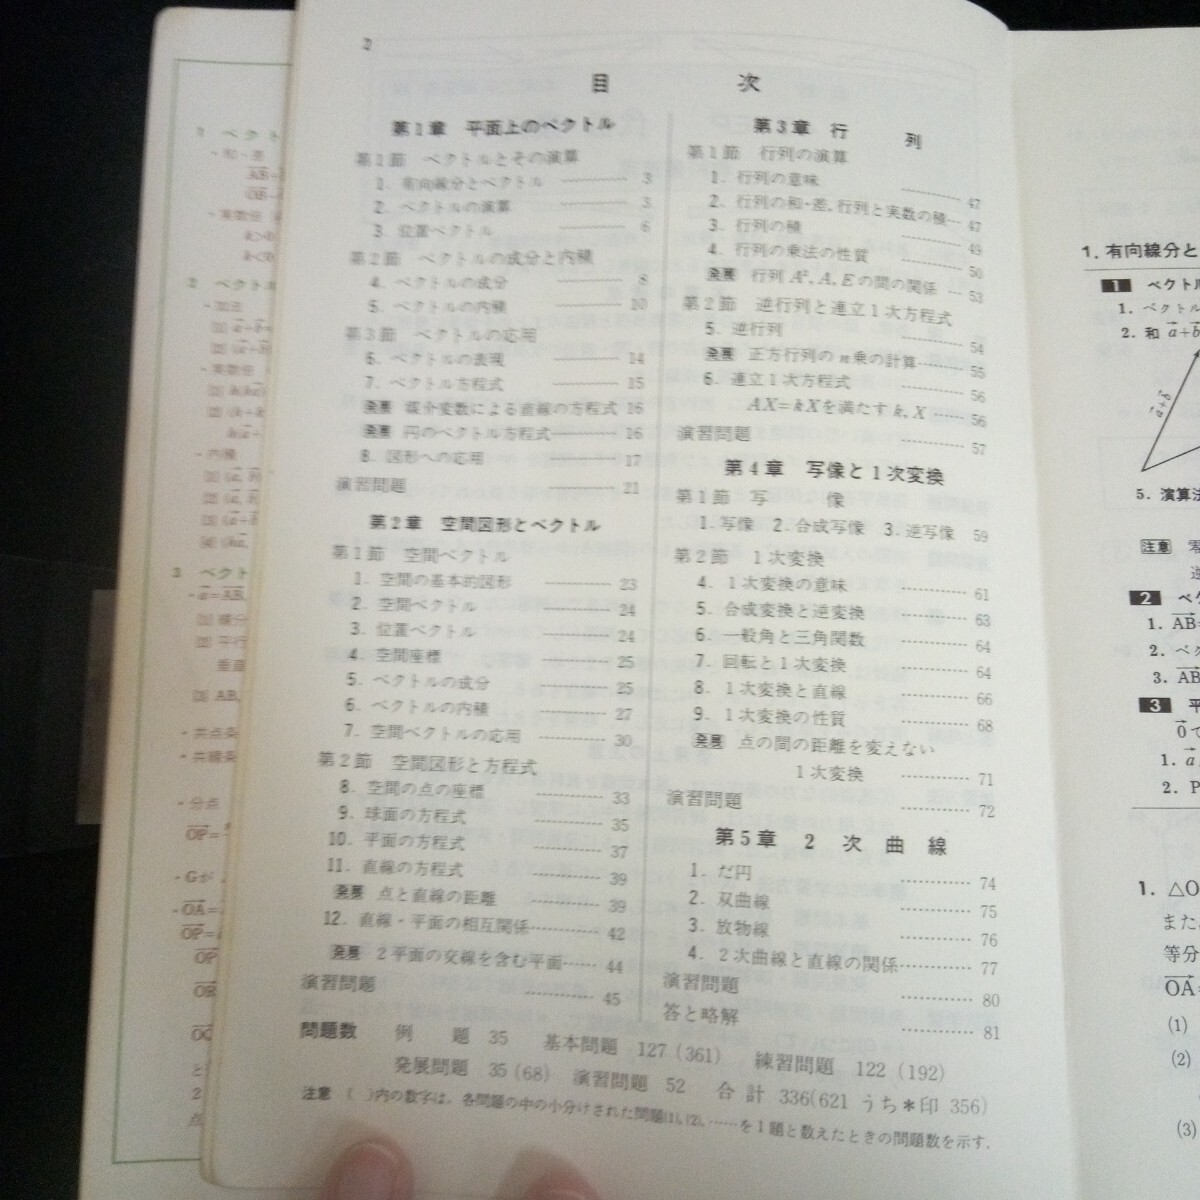 2
目 次
第1章 平面上のベクトル
第1節 ベクトルとその演算
1. 有向線分とベクトル ………… 3
2. ベクトルの演算 ………… 3
3. 位置ベクトル ………… 6
第2節 ベクトルの成分と内積
4. ベクトルの成分 ………… 8
5. ベクトルの内積 ………… 10
第3節 ベクトルの応用
6. ベクトルの表現 ………… 14
7. ベクトル方程式 ………… 15
発展 媒介変数による直線の方程式 16
発展 円のベクトル方程式………… 16
8. 図形への応用 ………… 17
演習問題 ………… 21
第2章 空間図形とベクトル
第1節 空間ベクトル
1. 空間の基本的図形 ………… 23
2. 空間ベクトル ………… 24
3. 位置ベクトル ………… 24
4. 空間座標 ………… 25
5. ベクトルの成分 ………… 25
6. ベクトルの内積 ………… 27
7. 空間ベクトルの応用 ………… 30
第2節 空間図形と方程式
8. 空間の点の座標 ………… 33
9. 球面の方程式 ………… 35
10. 平面の方程式 ………… 37
11. 直線の方程式 ………… 39
発展 点と直線の距離 ………… 39
12. 直線・平面の相互関係………… 42
発展 2平面の交線を含む平面…… 44
演習問題 ………… 45
第3章 行 列
第1節 行列の演算
1. 行列の意味 ………… 47
2. 行列の和・差,行列と実数の積… 47
3. 行列の積 ………… 49
4. 行列の乗法の性質 ………… 50
発展 行列 A², A, E の間の関係 … 53
第2節 逆行列と連立1次方程式
5. 逆行列 ………… 54
発展 正方行列の n 乗の計算………… 55
6. 連立1次方程式 ………… 56
AX=kX を満たす k, X …… 56
演習問題 ………… 57
第4章 写像と1次変換
第1節 写 像
1. 写像 2. 合成写像 3. 逆写像 59
第2節 1次変換
4. 1次変換の意味 ………… 61
5. 合成変換と逆変換 ………… 63
6. 一般角と三角関数 ………… 64
7. 回転と1次変換 ………… 64
8. 1次変換と直線 ………… 66
9. 1次変換の性質 ………… 68
発展 点の間の距離を変えない
1次変換 ………… 71
演習問題 ………… 72
第5章 2次曲線
1. だ円 ………… 74
2. 双曲線 ………… 75
3. 放物線 ………… 76
4. 2次曲線と直線の関係………… 77
演習問題 ………… 80
答と略解 ………… 81
問題数 例 題 35 基本問題 127 (361) 練習問題 122 (192)
発展問題 35 (68) 演習問題 52 合 計 336(621 うち*印 356)
注意 ( )内の数字は,各問題の中の小分けされた問題(1),(2),……を1題と数えたときの問題数を示す.
1. 有向線分と
1 ベクトル
1. ベクトル
2. 和 a+b
a+b
5. 演算法
注意
2 ベク
1. AB=
2. ベク
3. AB
3 平
0で
1. a
2. P
1. △O
また
等分
OA=
(1)
(2)
(3)